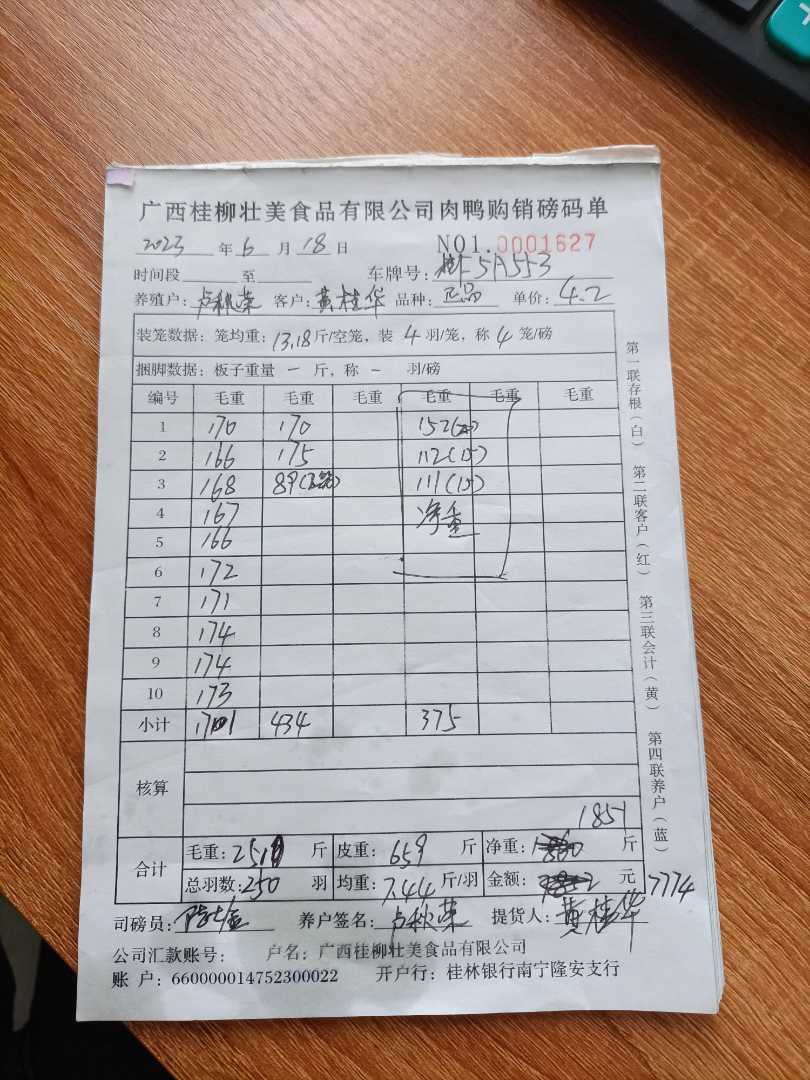 广西桂柳壮美食品有限公司肉鸭购销磅码单
2023 年 6 月 18 日 NO1.0001627
时间段 至 车牌号: 桂F5A553
养殖户: 卢秋荣 客户: 黄桂华 品种: 正品 单价: 4.2
装笼数据: 笼均重: 13.18 斤/空笼, 装 4 羽/笼, 称 4 笼/磅
捆脚数据: 板子重量 一 斤, 称 - 羽/磅
编号 毛重 毛重 毛重 毛重 毛重 毛重
1 170 170 152(20)
2 166 175 112(15)
3 168 89 111(15)
4 167 净重
5 166
6 172
7 171
8 174
9 174
10 173
小计 1701 434 375
核算
1851
合计 毛重: 2510 斤 皮重: 659 斤 净重: 斤
总羽数: 250 羽 均重: 7.44 斤/羽 金额: 元 7774
司磅员: 养户签名: 卢秋荣 提货人: 黄桂华
公司汇款账号: 户名: 广西桂柳壮美食品有限公司
账 户: 660000014752300022 开户行: 桂林银行南宁隆安支行
第一联存根(白) 第二联客户(红) 第三联会计(黄) 第四联养户(蓝)